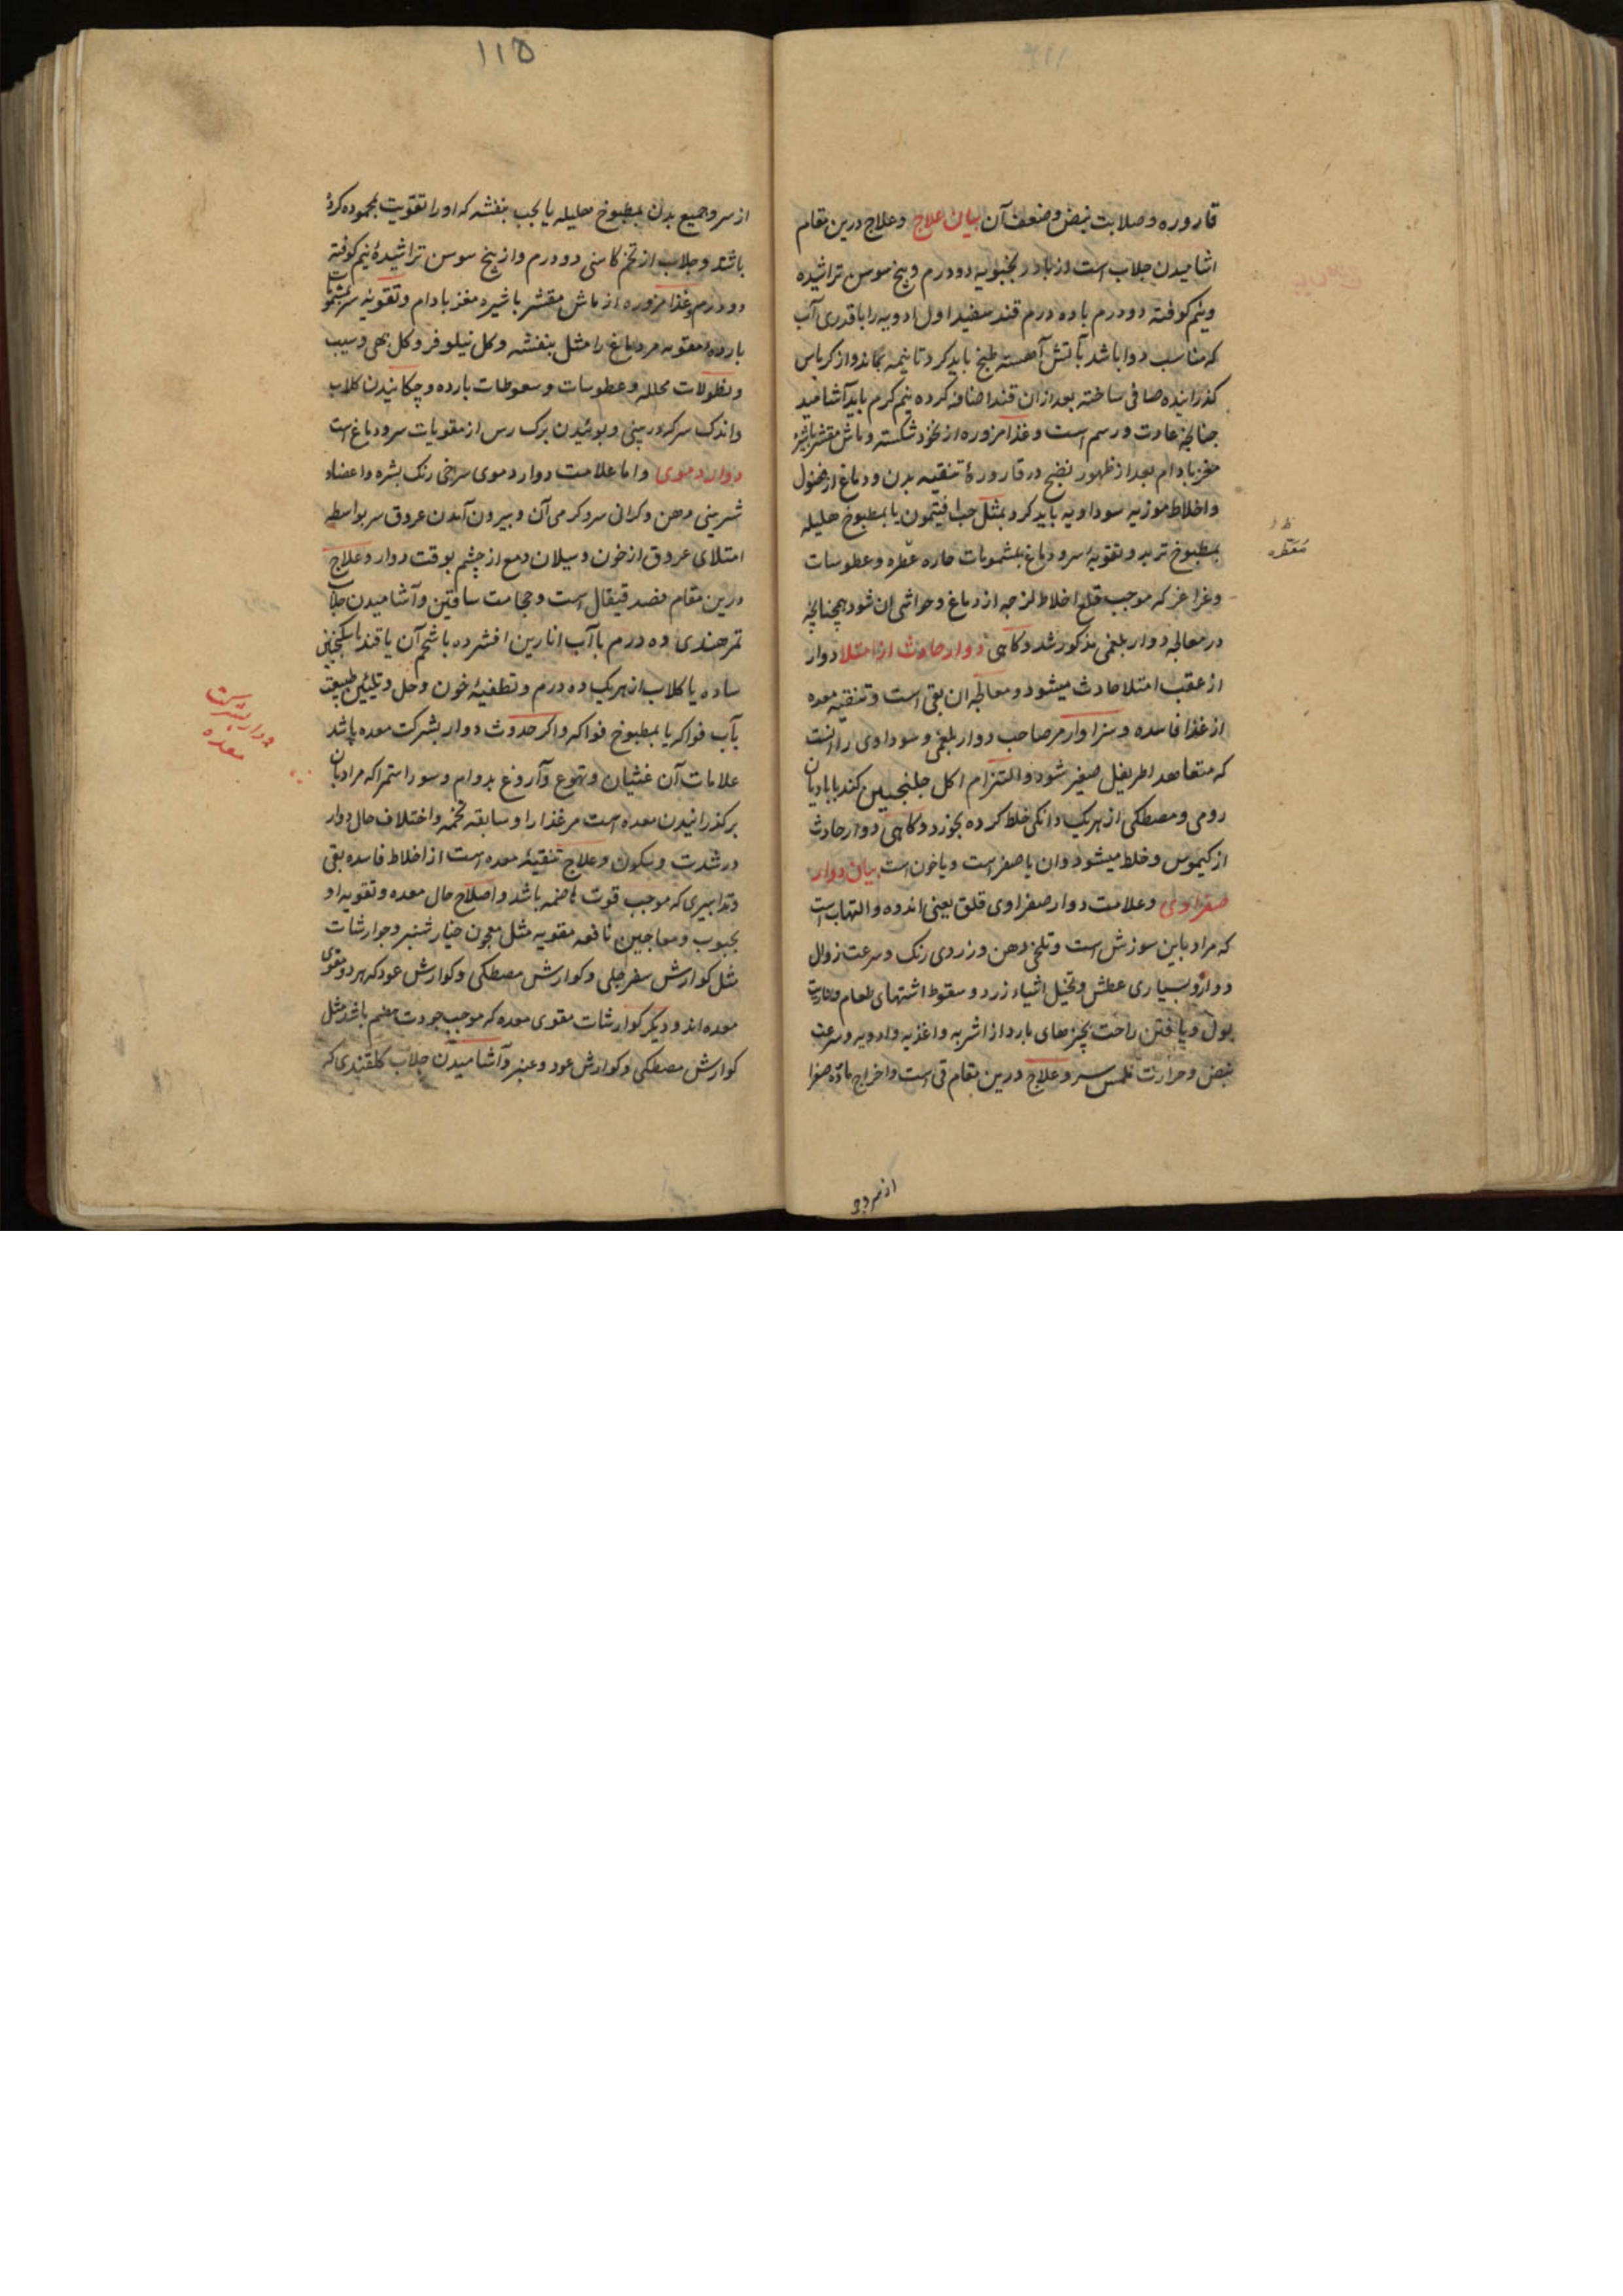 قاروره و صلابت نبض و ضعف آن بیان علاج و علاج درین مقام
اشامیدن جلاب است از بادرنجبویه دو درم و بیخ سوس تراشیده
و نیم کوفته دو درم با ده درم قند سفید اول ادویه را با قدری آب
که مناسب دوا باشد بآتش آهسته طبخ باید کرد تا نیمه بماند و از کرباس
کذرانیده صافی ساخته بعد از ان قند اضافه کرده نیم کرم باید آشامید
چنانچه عادت و رسم است و غذا مزوره از نخود شکسته و ماش مقشر باشیرهٔ
مغز بادام بعد از ظهور نضج در قاروره تنقیه بدن و دماغ از فضول
و اخلاط موزیه سوداویه باید کرد بمثل حب افتیمون یا بمطبوخ هلیله
بمطبوخ تربد و تقویه سر و دماغ بمشمومات حاره عطره و عطوسات
و غراغر که موجب قلع اخلاط لزجه از دماغ و حواشی ان شود همچنانچه
در معالجه دوار بلغمی مذکور شد و کاهی دوار حادث از امتلا دوار
از عقب امتلا حادث میشود و معالجه ان بقی است و تنقیه معده
از غذا فاسده و سزاوار مر صاحب دوار بلغمی و سوداوی را انست
که متعاهد اطریفل صغیر شود و التزام اکل جلنجبین کند با بادیان
رومی و مصطکی از هر یک دانکی خلط کرده بخورد و کاهی دوار حادث
از کیموس و خلط میشود و ان یا صفر است و یا خون است بیان دوار
صفراوی و علامت دوار صفراوی قلق یعنی اندوه و التهاب است
که مراد باین سوزش است و تلخی دهن و زردی رنک و سرعت زوال
دوار و بسیاری عطش و تخیل اشیاء زرد و سقوط اشتهای طعام و ناریت
بول و یافتن راحت بچیزهای بارد از اشربه و اغذیه و ادویه و سرعت
نبض و حرارت ملمس سر و علاج درین مقام قی است و اخراج ماده صفرا
از سر و
ظ
معطره
۱۱۵
از سر و جمیع بدن بمطبوخ هلیله یا بحب بنفشه که او را تقویت بمحموده کردهٔ
باشد و جلاب از تخم کاسنی دو درم و از بیخ سوسن تراشیدهٔ نیم کوفته
دو درم و غذا مزوره از ماش مقشر باشیره مغز بادام و تقویه سر بمشمومات
بارده مقویه مر دماغ را مثل بنفشه و کل نیلوفر و کل بهی و سیب
و نطولات محلله و عطوسات و سعوطات بارده و چکانیدن کلاب
و اندک سرکه در بینی و بوئیدن برک رس از مقویات سر و دماغ است
دوار دموی و اما علامت دوار دموی سرخی رنک بشره و اعضا و
شیرینی دهن و کرانی سر و کرمی آن و بیرون آمدن عروق سر بواسطه
امتلای عروق از خون و سیلان دمع از چشم بوقت دوار و علاج
درین مقام فصد قیفال است و حجامت ساقین و آشامیدن جلاب
تمر هندی ده درم با آب انارین افشرده باشحم آن یا قند یا سکنجبین
ساده یا کلاب از هر یک ده درم و تطفیهٔ خون و حل و تلیین طبیعت
بآب فواکه یا بمطبوخ فواکه و اکر حدوث دوار بشرکت معده باشد
علامات آن غشیان و تهوع و آروغ بدوام و سور استمرا که مراد بان
بر کذرانیدن معده است مر غذا را و سابقه تخمه و اختلاف حال دوار
در شدت و سکون و علاج تنقیه معده است از اخلاط فاسده بقی
و تدابیری که موجب قوت هاضمه باشد و اصلاح حال معده و تقویه او
بحبوب و معاجین نافعه مقویه مثل معجون خیارشنبر و جوارشات
مثل کوارش سفرجلی و کوارش مصطکی و کوارش عود که هر دو مقوی
معده اند و دیکر کوارشات مقوی معده که موجب جودت هضم باشد مثل
کوارش مصطکی و کوارش عود و عنبر و آشامیدن جلاب کلقندی که
دوار بشرکت
معده